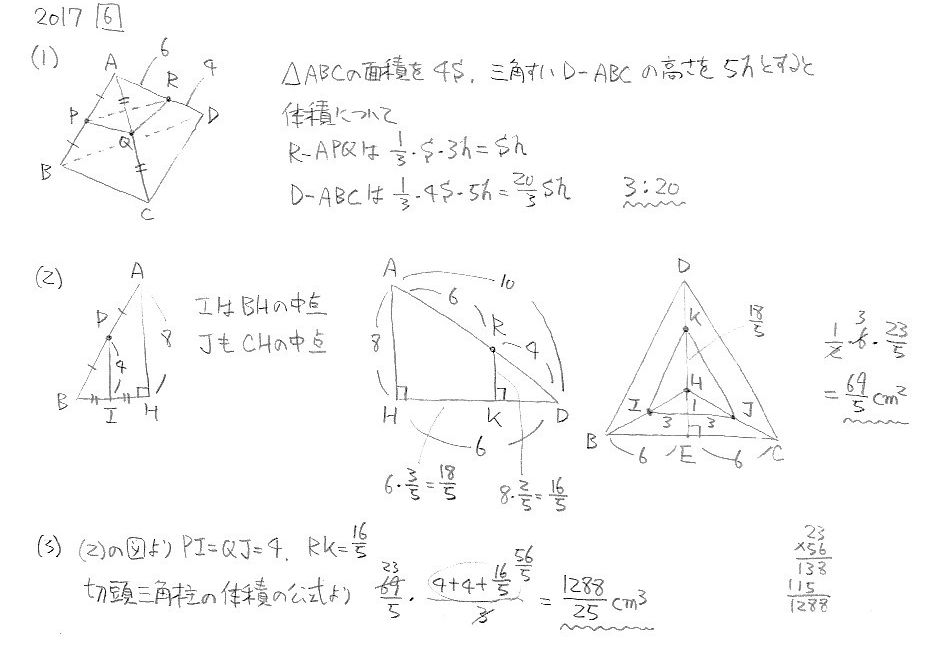 2017 6
(1)
A 6 R 4 D P Q B C
△ABCの面積を4S, 三角すいD-ABCの高さを5hとすると
体積について
R-APQは 1/3・S・3h=Sh
D-ABCは 1/3・4S・5h=20/3 Sh 3:20
(2)
A P 8 4 B I H
IはBHの中点
JもCHの中点
A 10 6 R 4 8 H K D 6
6・3/5=18/5 8・2/5=16/5
D K 18/5 H I 1 J 3 3 B 6 E 6 C
1/2・6・23/5 3
=69/5 cm²
(3) (2)の図より PI=QJ=4, RK=16/5
切頭三角柱の体積の公式より 69/5・(4+4+16/5)/3 = 1288/25 cm³
23 56/5
23
×56
138
115
1288